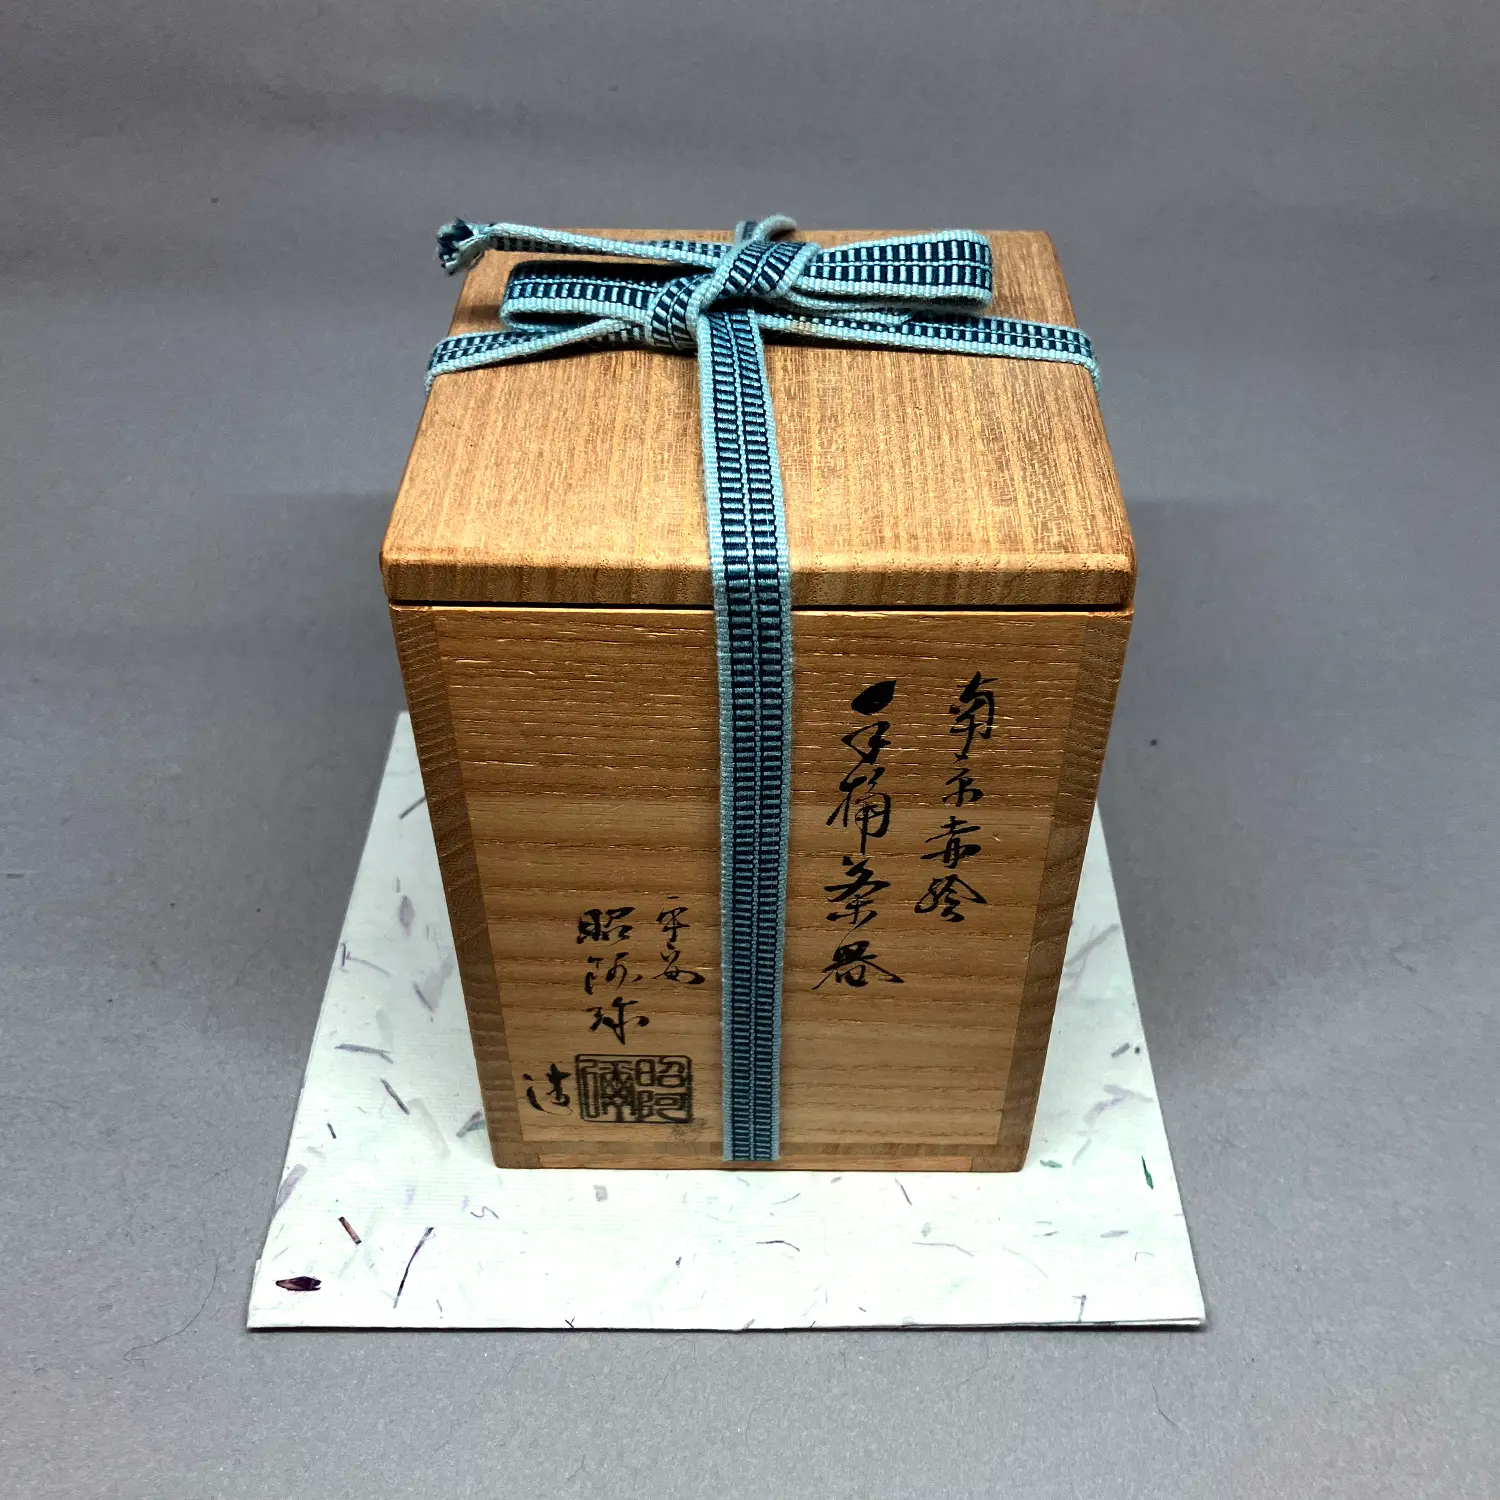 南京赤絵
手桶茶器
平安
昭阿弥
造
昭阿彌